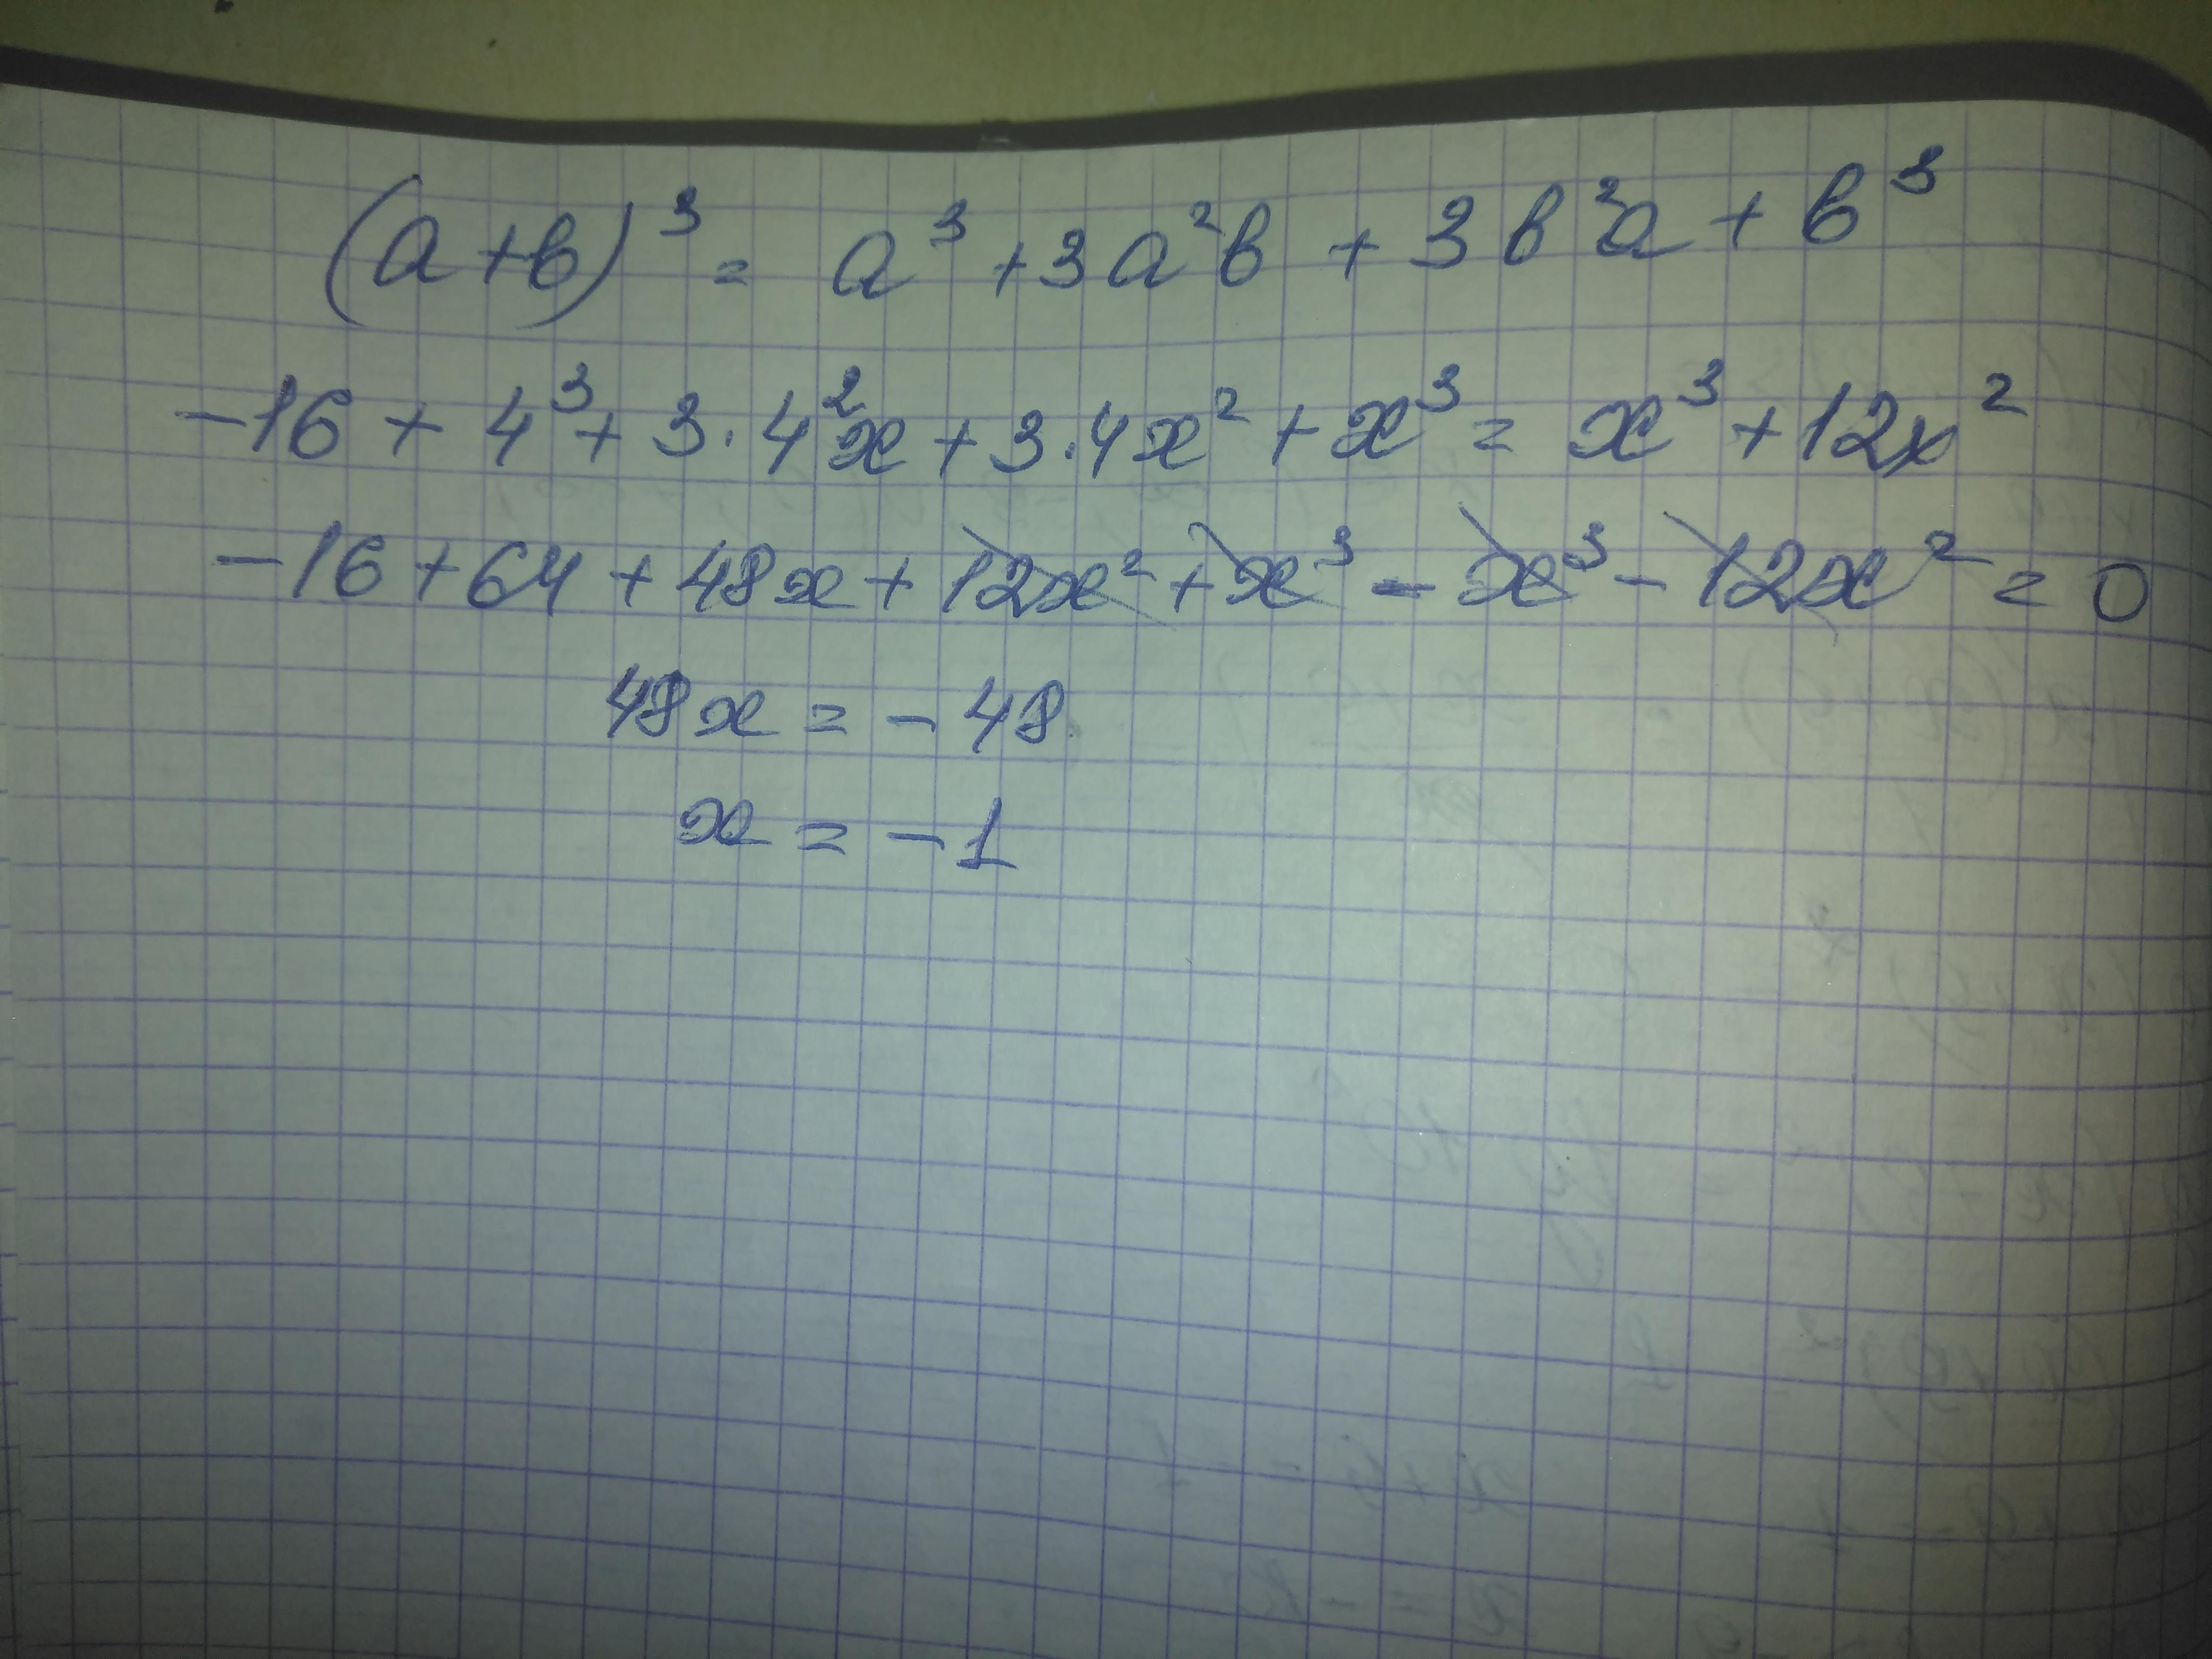 (a+b)³ = a³ + 3a²b + 3b²a + b³
-16 + 4³ + 3·4²x + 3·4x² + x³ = x³ + 12x²
-16 + 64 + 48x + 12x² + x³ - x³ - 12x² = 0
48x = -48
x = -1